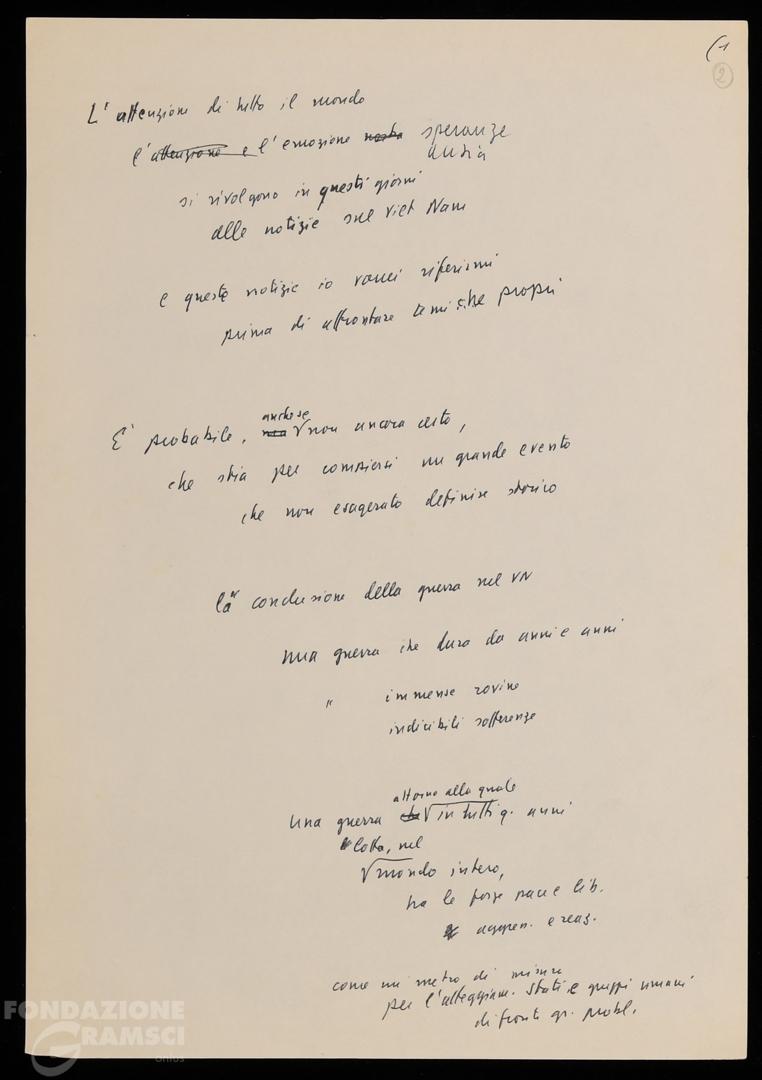 (1
2
L'attenzione di tutto il mondo
l'attenzione e l'emozione nostra speranze
ansia
si rivolgono in questi giorni
alle notizie sul Viet Nam
e queste notizie io vorrei riferirmi
prima di affrontare temi che propri
E' probabile, anche se
non non ancora certo,
che stia per compiersi un grande evento
che non esagerato definire storico
la conclusione della guerra nel VN
una guerra che dura da anni e anni
" immense rovine
indicibili sofferenze
attorno alla quale
una guerra che in tutti q. anni
lotta, nel
mondo intero,
tra le forze pace e lib.
aggress. e reaz.
come un metro di misura
per l'atteggiam. Stati e gruppi umani
di fronte gr. probl.
FONDAZIONE
GRAMSCI
onlus